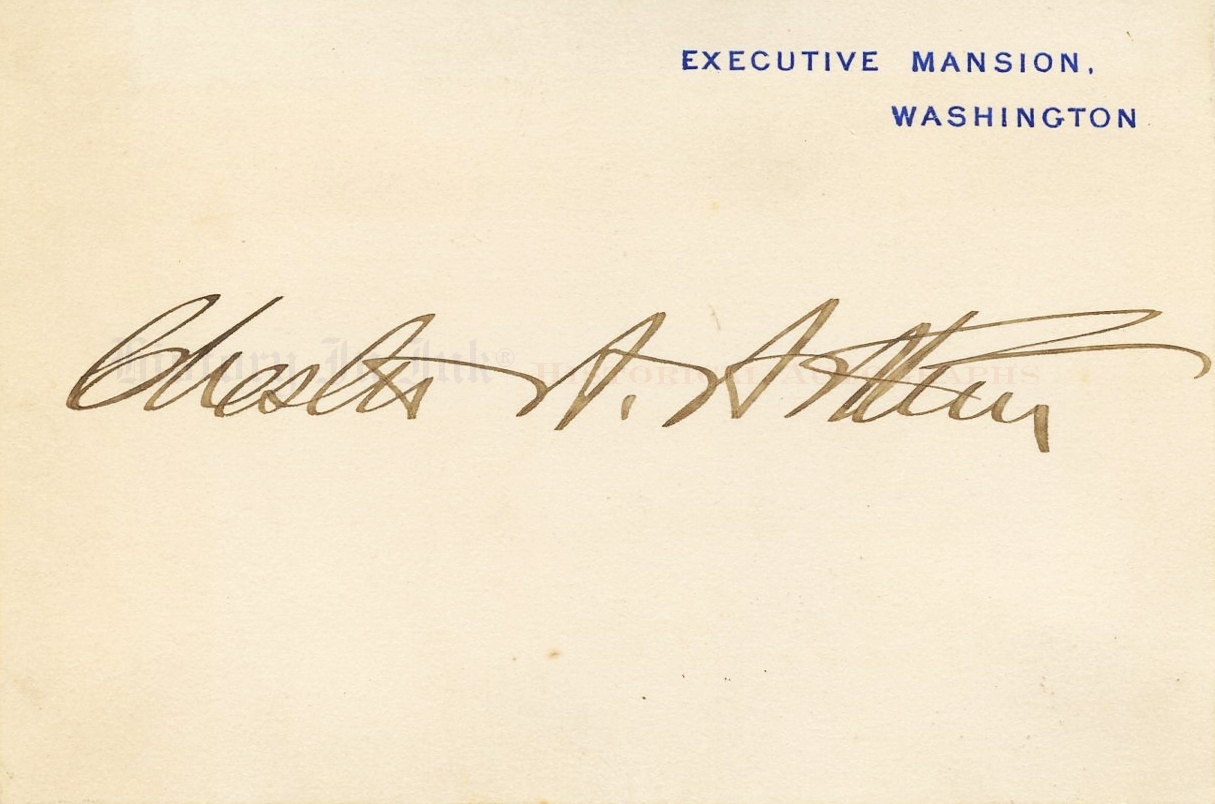 EXECUTIVE MANSION,
WASHINGTON
Chester A. Arthur
History In Ink® HISTORICAL AUTOGRAPHS